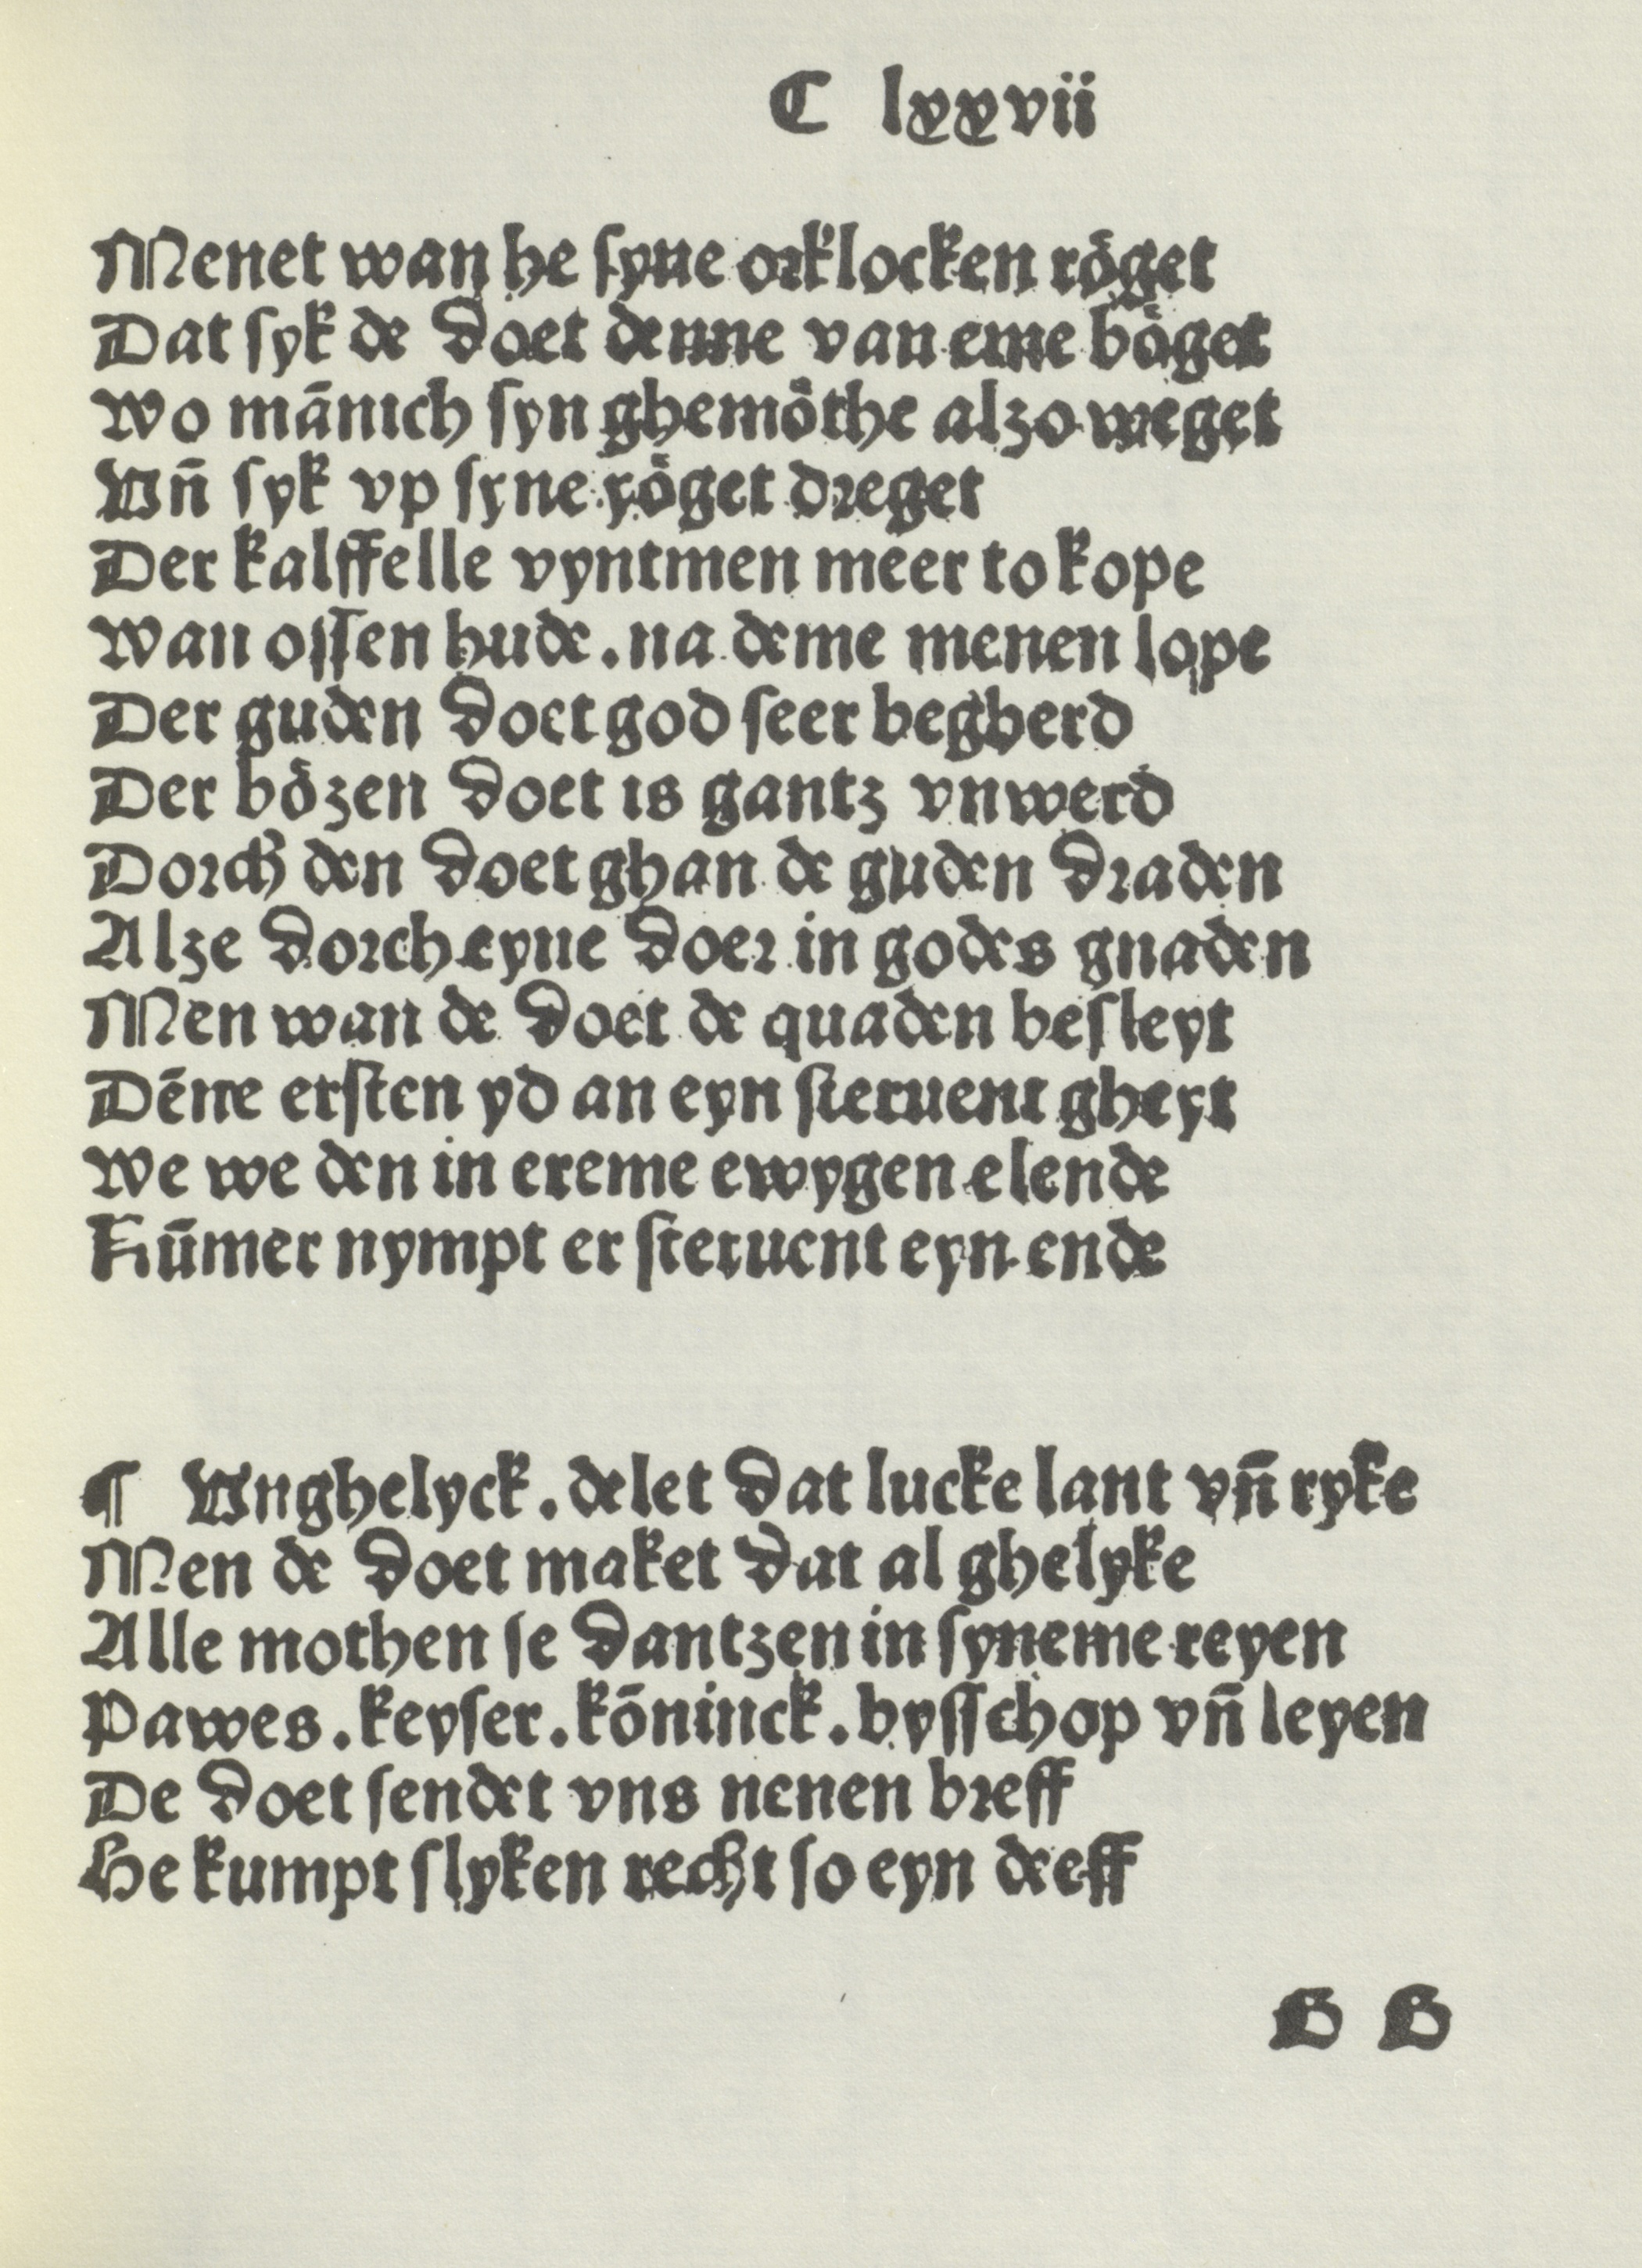 C lxxvii
Menet wan he ſyne orklocken röget
Dat ſyk de doet denne van eme böget
Wo mānich ſyn ghemöthe alzo weget
Vn̄ ſyk vp ſyne yöget dreget
Der kalffelle vyntmen meer to kope
Wan oſſen hude. na deme menen lope
Der guden doet god ſeer begherd
Der bözen doet is gantz vnwerd
Dorch den doet ghan de guden draden
Alze dorch eyne doer in godes gnaden
Men wan de doet de quaden beſleyt
Dēne erſten yd an eyn ſteruent gheyt
We we den in ereme ewygen elende
Nūmer nympt er ſteruent eyn ende
¶ Vnghelyck. delet dat lucke lant vn̄ ryke
Men de doet maket dat al ghelyke
Alle mothen ſe dantzen in ſyneme reyen
Pawes. keyſer. kōninck. byſſchop vn̄ leyen
De doet ſendet vns nenen breff
He kumpt ſlyken recht ſo eyn deeff
B B